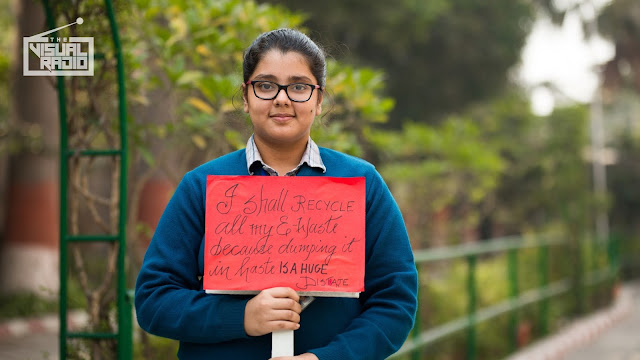 THE
VISUAL
RADIO
I shall RECYCLE
all my E Waste
because dumping it
in Waste IS A HUGE
DISTASTE